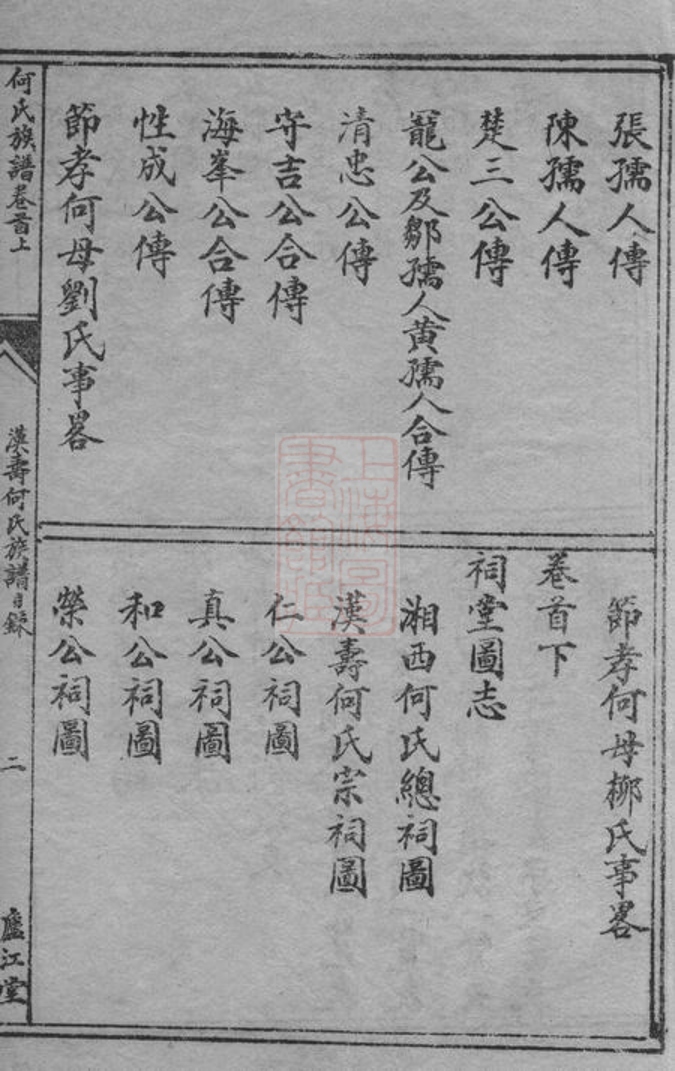 張孺人傳
陳孺人傳
楚三公傳
寵公及鄒孺人黃孺人合傳
清忠公傳
守吉公合傳
海峯公合傳
性成公傳
節孝何母劉氏事畧
節孝何母柳氏事畧
卷首下
祠堂圖志
湘西何氏總祠圖
漢壽何氏宗祠圖
仁公祠圖
真公祠圖
和公祠圖
榮公祠圖
何氏族譜卷首上
漢壽何氏族譜目錄
二
廬江堂